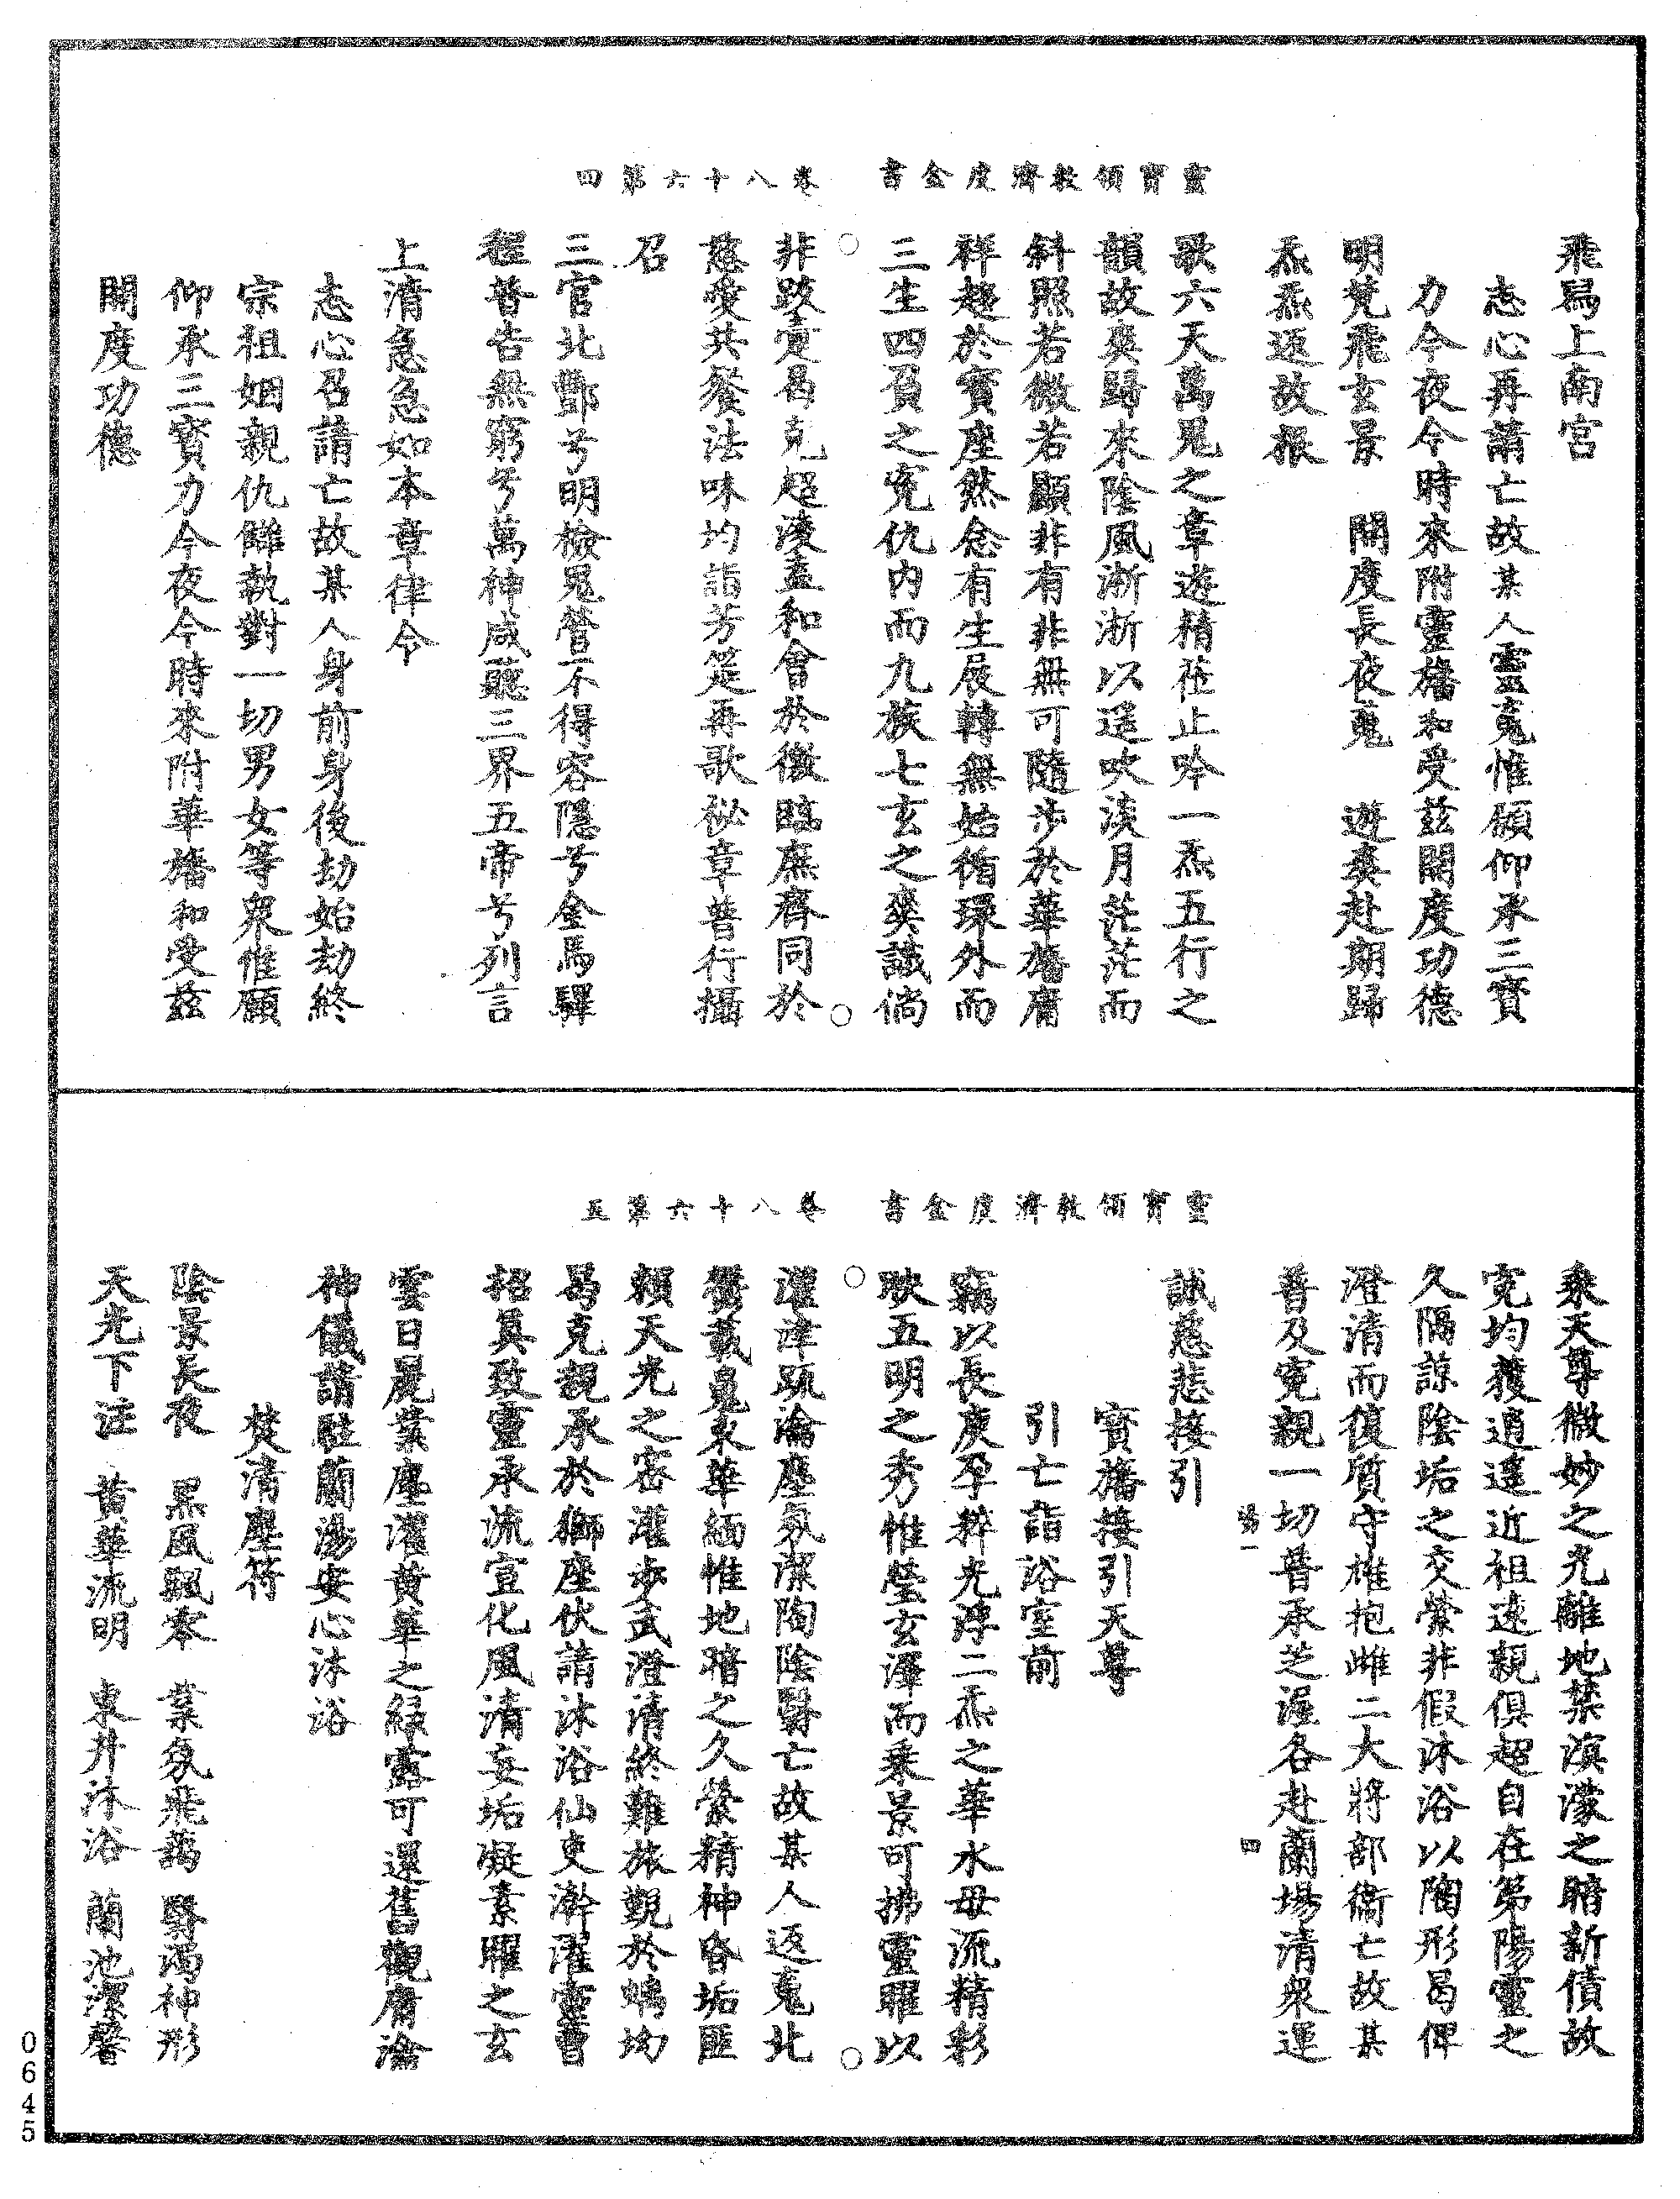 靈寶領教濟度金書　卷八十六第四
飛舄上南宮
志心再請亡故某人靈䰟惟願仰承三寶
力今夜今時來附靈旛和受兹開度功德
明梵飛玄景　開度長夜䰟　遊爽赴期歸
炁炁返故根
歌六天萬鬼之章遊精蒞止吟一炁五行之
韻故爽歸來陰風淅淅以遥吹淡月茫茫而
斜照若微若顯非有非無可隨步於華旛庸
祥趨於寳座然念有生展轉無始循環外而
三生四負之寃仇内而九族七玄之爽識倘
非跋寔曷克超淩盍和會於微臨庶齊同於
慈愛共餐法味均詣芳筵再歌秘章普行攝
召
三官北酆兮明檢鬼營不得容隱兮金馬驛
程普告無窮兮萬神咸聽三界五帝兮列言
上清急急如本章律令
志心召請亡故某人身前身後劫始劫終
宗祖姻親仇讎執對一切男女等衆惟願
仰承三寳力今夜今時來附華旛和受兹
開度功德
靈寶領教濟度金書　卷八十六第五
乘天尊微妙之光離地禁溟濛之暗新債故
寃均獲逍遥近祖遠親俱超自在第陽靈之
久隔諒陰垢之交縈非假沐浴以陶形曷俾
澄清而復質守雄抱雌二大將部衛亡故某
普及寃親一切普承芝渥各赴蘭場清衆運
塲一　四
誠慈悲接引
寳旛接引天尊
引亡詣浴室前
竊以長庚孕粹光浮二炁之華水母流精彩
映五明之秀惟瑩玄澤而乘景可拂靈曜以
濯津䟽瀹塵氛潔陶陰翳亡故某人返䰟北
欝載䰟東華緬惟地暗之久縈精神昏垢匪
頼天光之密灌步武澄清終難旅觀於螭坳
曷克親承於獅座伏請沐浴仙吏澣濯靈曹
招真致靈承流宣化風清妄垢凝素曜之玄
雲日晃業塵濯黄華之緑露可還舊觀庸瀹
神儀請駐蘭湯安心沐浴
焚清塵符
陰景長夜　黑風飄零　業氛飛藹　翳濁神形
天光下注　黄華流明　東井沐浴　蘭池潔馨
0645